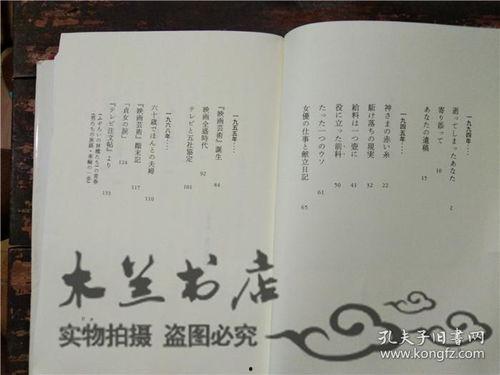 一九九四年‥‥
逝ってしまったあなた 2
寄り添って 10
あなたの遺稿 15
一九四五年‥‥
神さまの赤い糸 22
駆け落ちの現実 32
給料は一つ壺に 41
役に立った前科 50
たった一つのウソ 61
女優の仕事と献立日記 65
一九五五年‥‥
『映画芸術』誕生 84
映画全盛時代 92
テレビと五社協定 101
一九六八年‥‥
六十歳でほんとの夫婦 110
『映画芸術』顛末記 117
「貞女の涙」 124
『テレビ注文帖』より 133
木兰书店
实物拍摄 盗图必究
孔夫子旧书网
www.kongfz.com